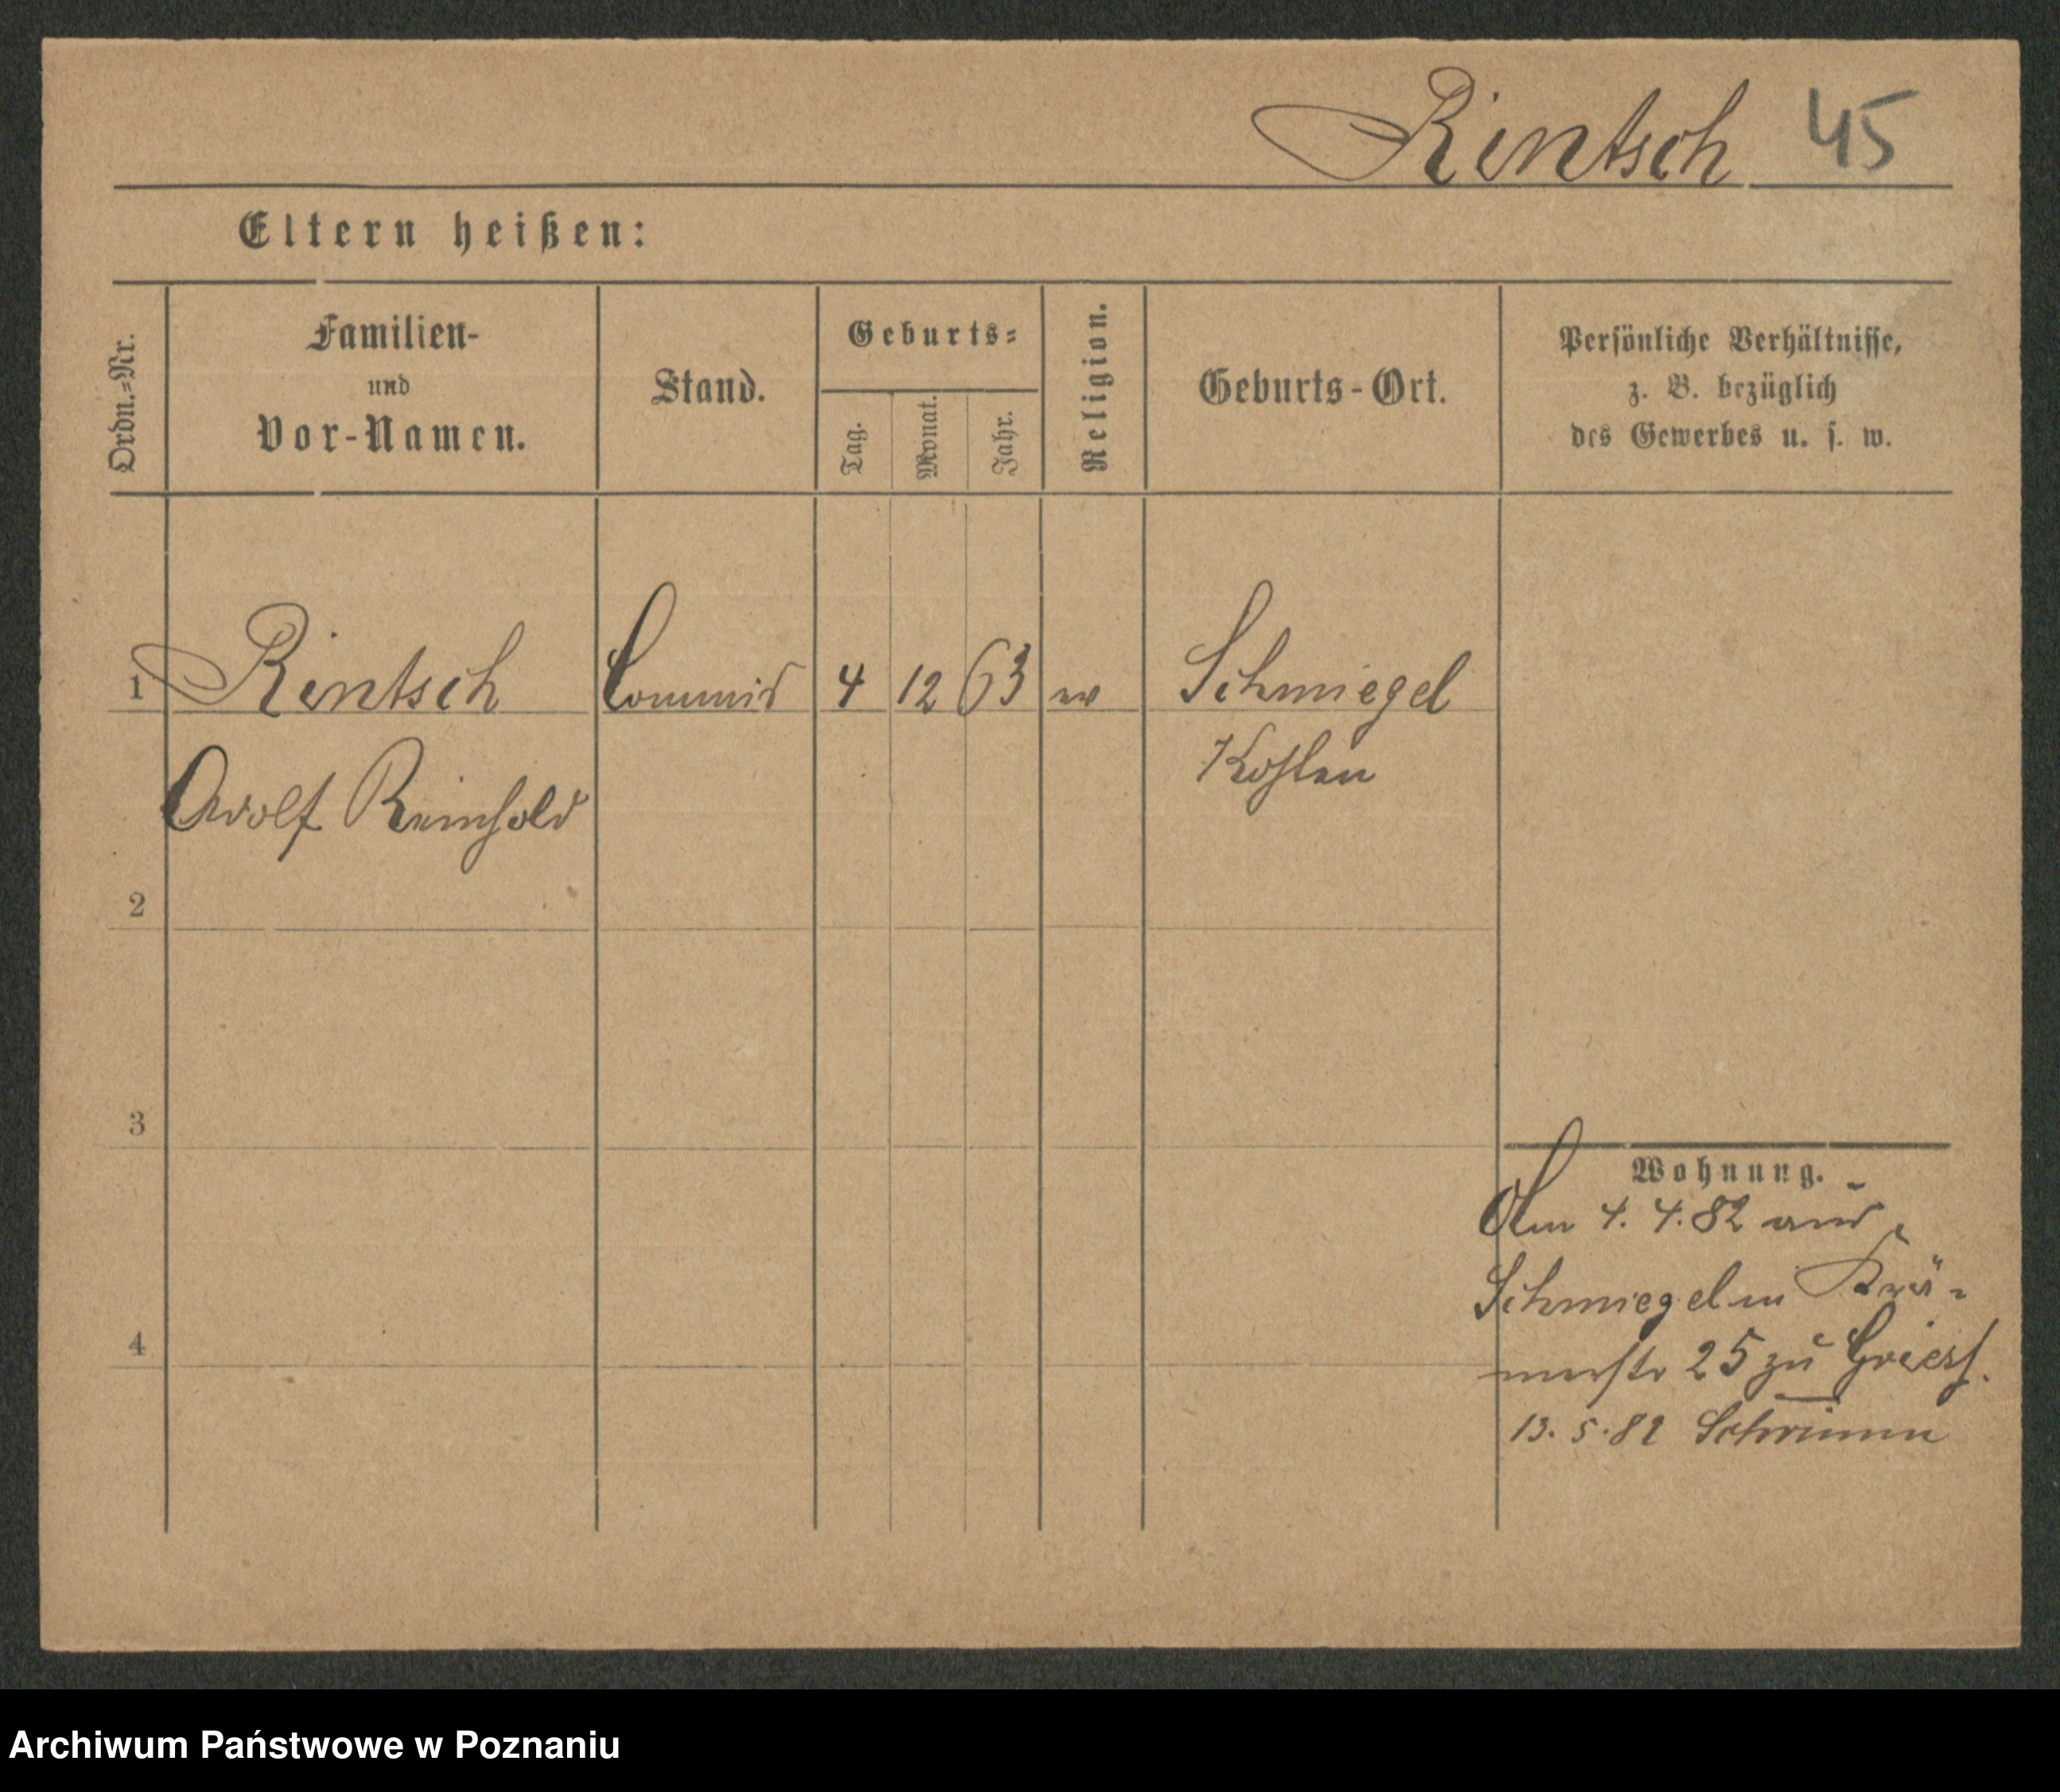 Rintsch 45
Eltern heißen:
Ordn.-Nr.
Familien-
und
Vor-Namen.
Stand.
Geburts-
Tag.
Monat.
Jahr.
Religion.
Geburts-Ort.
Persönliche Verhältnisse,
z. B. bezüglich
des Gewerbes u. s. w.
1 Rintsch Commis 4 12 63 ev Schmiegel
Kosten
Adolf Reinhold
2
3
4
Wohnung.
Am 4. 4. 82 aus
Schmiegel in Krä-
merstr 25 zu
13. 5. 82 Schrimm
Archiwum Państwowe w Poznaniu